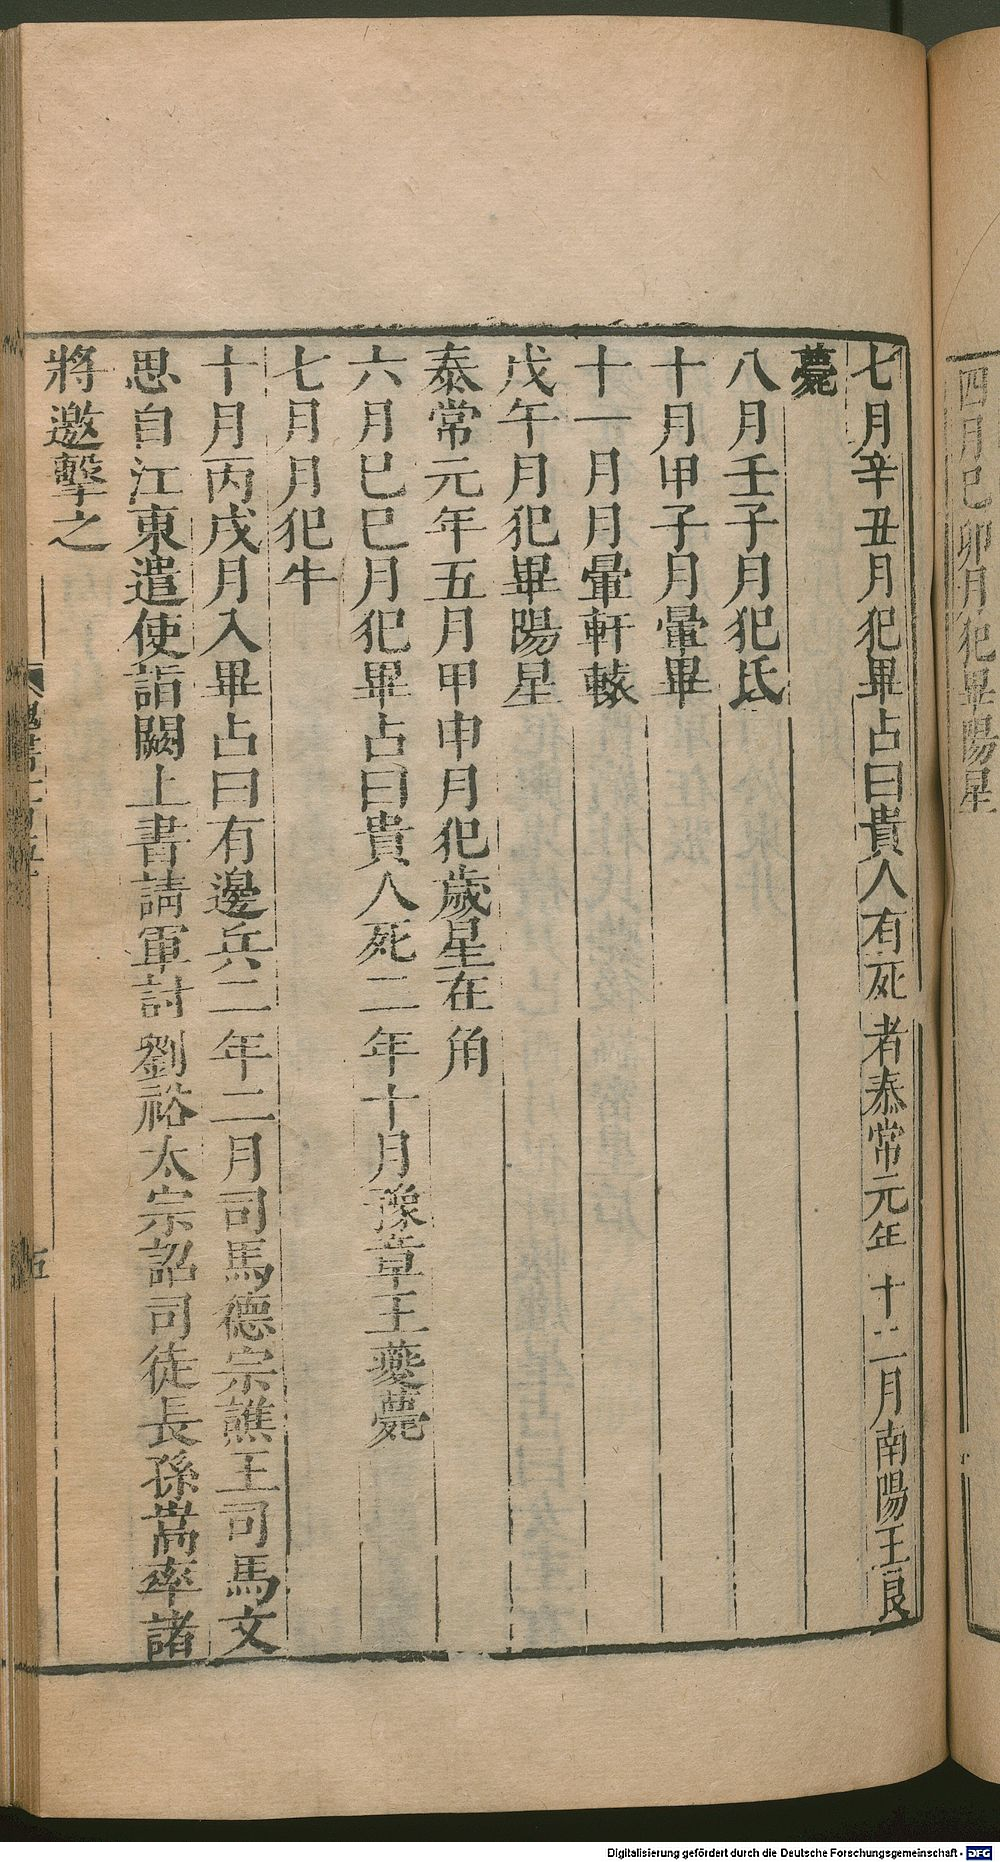 四月己卯月犯畢陽星
七月辛丑月犯畢占曰貴人有死者泰常元年十二月南陽王良
薨
八月壬子月犯氐
十月甲子月暈畢
十一月月暈軒轅
戊午月犯畢陽星
泰常元年五月甲申月犯歲星在角
六月己巳月犯畢占曰貴人死二年十月豫章王夔薨
七月月犯牛
十月丙戌月入畢占曰有邊兵二年二月司馬德宗譙王司馬文
思自江東遣使詣闕上書請軍討劉裕太宗詔司徒長孫嵩率諸
將邀擊之
五
Digitalisierung gefördert durch die Deutsche Forschungsgemeinschaft - DFG